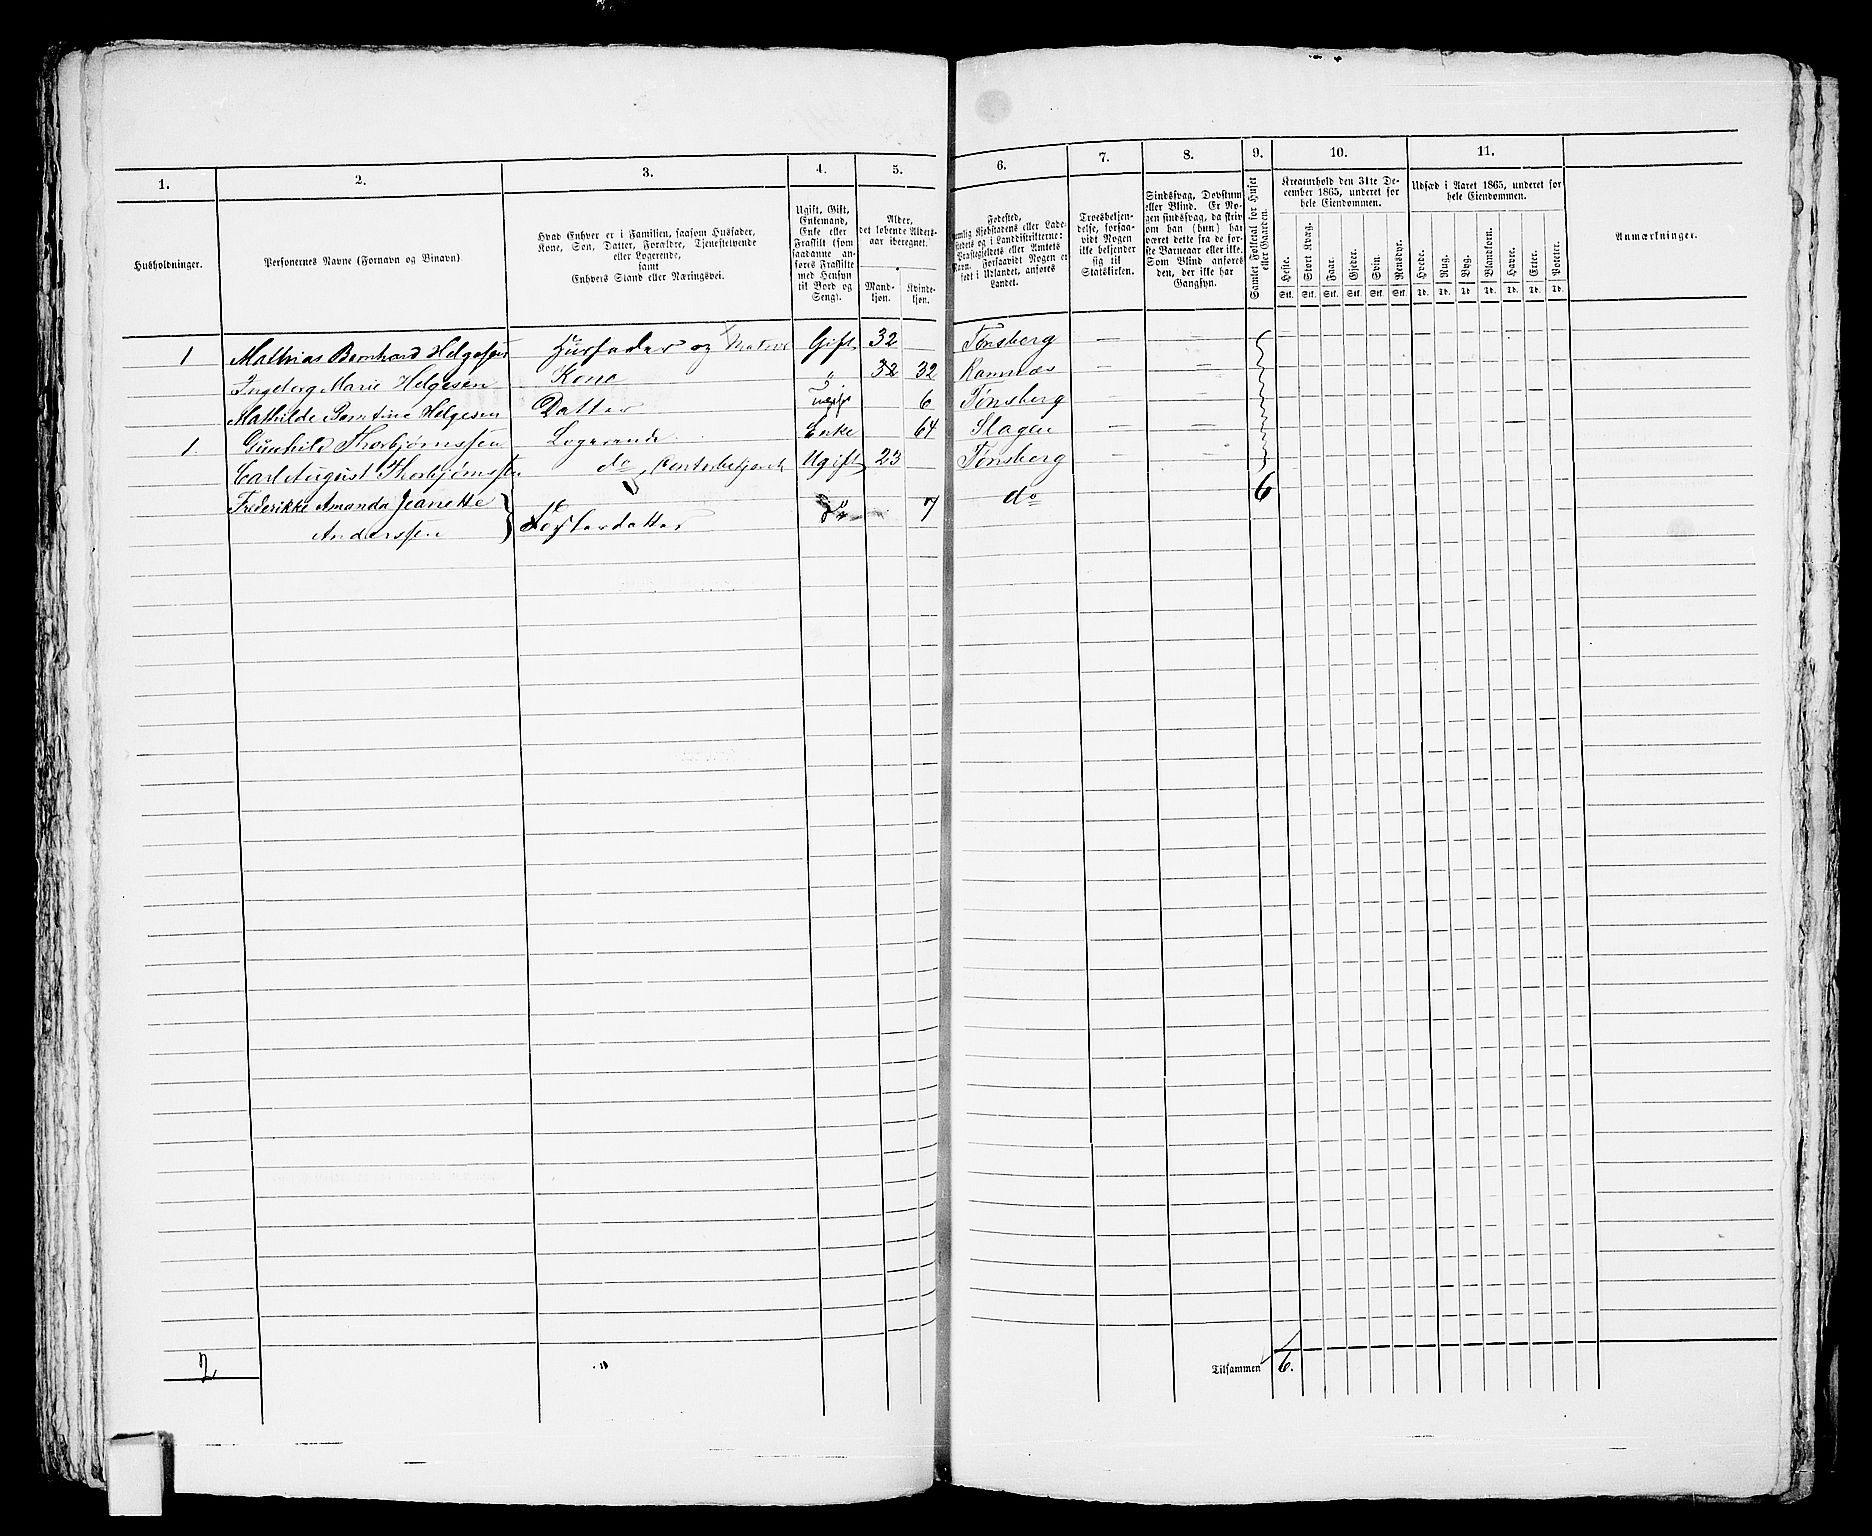 1. 2. 3. 4. 5. 6. 7. 8. 9. 10. 11.
Husholdninger.
Personernes Navne (Fornavn og Binavn).
Hvad Enhver er i Familien, saasom Husfader,
Kone, Søn, Datter, Forældre, Tjenestetyende
eller Logerende,
samt
Enhvers Stand eller Næringsvei.
Ugift, Gift,
Enkemand,
Enke eller
Fraskilt (som
saadanne an-
føres Fraskilte
med Hensyn
til Bord og
Seng).
Alder,
det løbende Alders-
aar iberegnet.
Mand-
kjøn.
Kvinde-
kjøn.
Fødested,
nemlig Kjøbstadens eller Lade-
stedets og i Landdistrikterne:
Præstegjeldets eller Amtets
Navn. Forsaavidt Nogen er
født i Udlandet, anføres
Landet.
Troesbekjen-
delse, forsaa-
vidt Nogen
ikke bekjender
sig til
Statskirken.
Sindssvag, Døvstum
eller Blind. Er No-
gen sindssvag, da skriv
om han (hun) har
været dette fra de før-
ste Barneaar eller ikke.
Som Blind anføres
den, der ikke har
Gangsyn.
Samlet Folketal for Huset
eller Gaarden.
Kreaturhold den 31te De-
cember 1865, underet for
hele Eiendommen.
Heste. Stort Kvæg. Faar. Gjeder. Svin. Rensdyr.
Stk. Stk. Stk. Stk. Stk. Stk.
Udsæd i Aaret 1865, underet for
hele Eiendommen.
Hvede. Rug. Byg. Blandkorn. Havre. Erter. Poteter.
Td. Td. Td. Td. Td. Td. Td.
Anmærkninger.
1 Mathias Bernhard Helgesen Husfader og Matros Gift 32 Tønsberg — —
Ingeborg Marie Helgesen Kone " 32 32 Ramnæs — —
Mathilde Berntine Helgesen Datter ugift 6 Tønsberg — —
1. Gunhild Thorbjørnssen Logerende Enke 64 Slagen — —
Carl August Thorbjørnssen do, Contorbetjent Ugift 23 Tønsberg — —
Frederikke Amanda Jeanette do 7 do 6
Anderssen Datterdatter
2
Tilsammen 6.